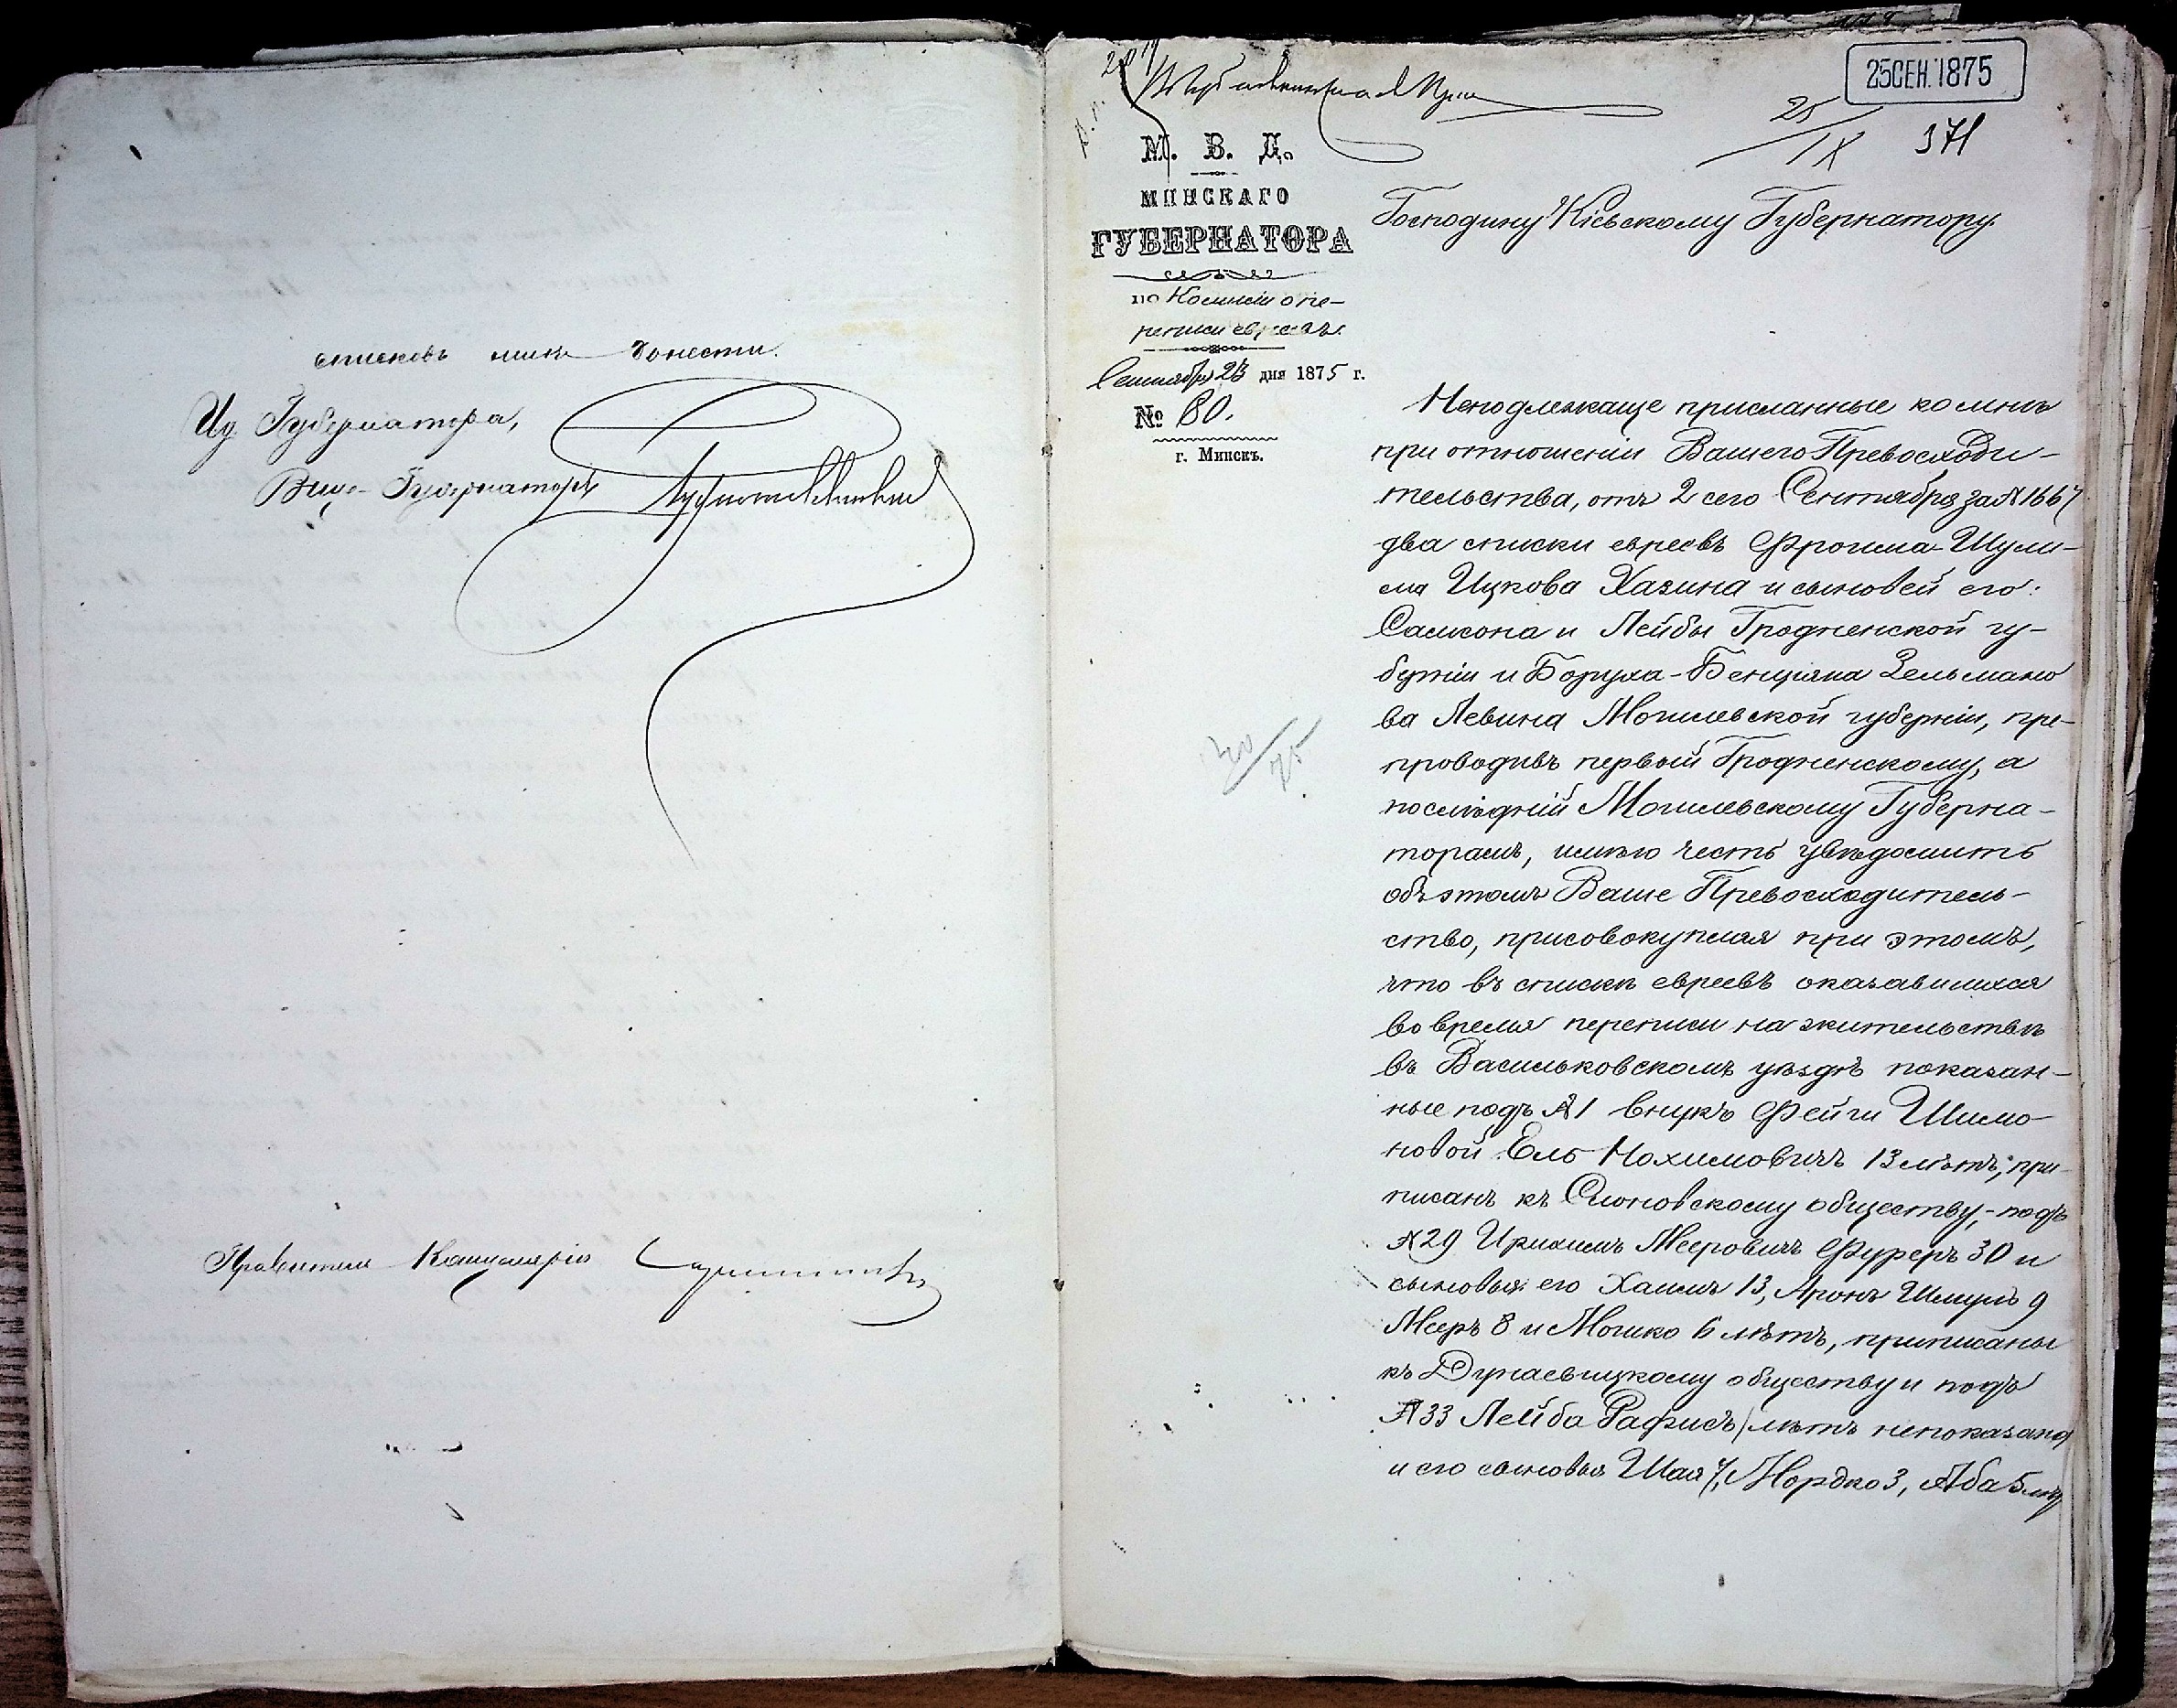 списковъ мнѣ донести.
И д Губернатора,
Вице-Губернаторъ
Правитель Канцеляріи
25 СЕН. 1875
25/IX 371
М. В. Д.
МИНСКАГО
ГУБЕРНАТОРА
по Комисіи о пе-
реписи евреевъ.
Сентября 23 дня 1875 г.
№ 80.
г. Минскъ.
Господину Кіевскому Губернатору.
Неподлежаще присланные ко мнѣ
при отношеніи Вашего Превосходи-
тельства, отъ 2 сего Сентября за № 1667
два списки евреевъ Фроима-Шули-
ма Ицкова Хазина и сыновей его:
Самсона и Лейбы Гродненской гу-
берніи и Боруха-Бенціяна Зельмано
ва Левина Могилевской губерніи, пре-
проводивъ первый Гродненскому, а
послѣдній Могилевскому Губерна-
торамъ, имѣю честь увѣдомить
объ этомъ Ваше Превосходитель-
ство, присовокупляя при этомъ,
что въ спискѣ евреевъ оказавшихся
во время переписи на жительствѣ
въ Васильковскомъ уѣздѣ показан-
ные подъ № 1 внукъ Фейги Шимо-
новой Ель Нохимовичъ 13 лѣтъ, при
писанъ къ обществу, - подъ
№ 29 Ирихимъ Мееровичъ Фуреръ 30 и
сыновья его Хаимъ 13, Аронъ Шмуль 9
Мееръ 8 и Мошко 6 лѣтъ, приписаны
къ Дунаевицкому обществу и подъ
№ 33 Лейба Рафисъ (лѣтъ непоказано)
и его сыновья Шая 7, Мордко 3, Аба 5 лѣт
30/75